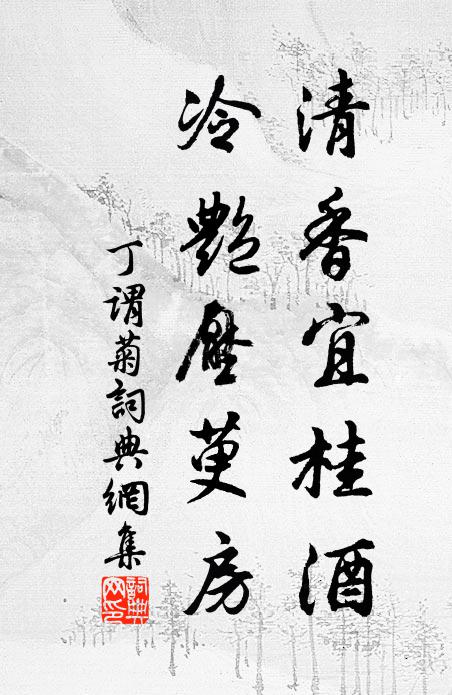 清香宜桂酒
冷艷壓萸房
丁謂菊詞典網集
詞典網印